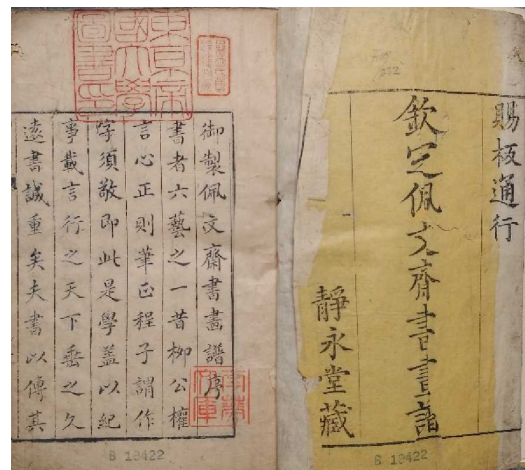 賜板通行
欽定佩文齋書畫譜
靜永堂藏
B 18422
東京帝國大學圖書印
御製佩文齋書畫譜序
書者六藝之一昔柳公權
言心正則筆正程子謂作
字須敬即此是學蓋以紀
事載言行之天下垂之久
遠書誠重矣夫書以傳其
南葵文庫
B 18422